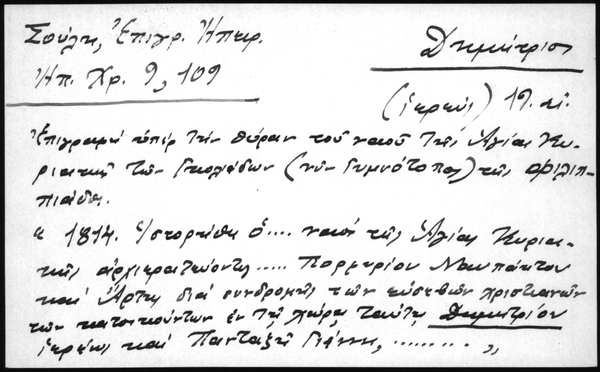 Σούλη, Ἐπιγρ. Ἠπειρ.
Δημήτριος
Ἠπ. Χρ. 9, 109
(ἱερεύς) 19. αἰ.
Ἐπιγραφή ὑπέρ τήν θύραν τοῦ ναοῦ τῆς Ἁγίας Κυ-
ριακῆς τῶν Γκολιάδων (νῦν Γυμνότοπος) τῆς Φιλιπ-
πιάδος.
« 1814. Ἱστορίσθη ὁ.... ναός τῆς Ἁγίας Κυρια-
κῆς ἀρχιερατεύοντος..... Πορφυρίου Ναυπάκτου
καί Ἄρτης διά συνδρομῆς τῶν εὐσεβῶν χριστιανῶν
τῶν κατοικούντων ἐν τῇ χώρᾳ ταύτῃ Δημητρίου
ἱερέως καί Πανταζῆ Γιάννη, ......... »